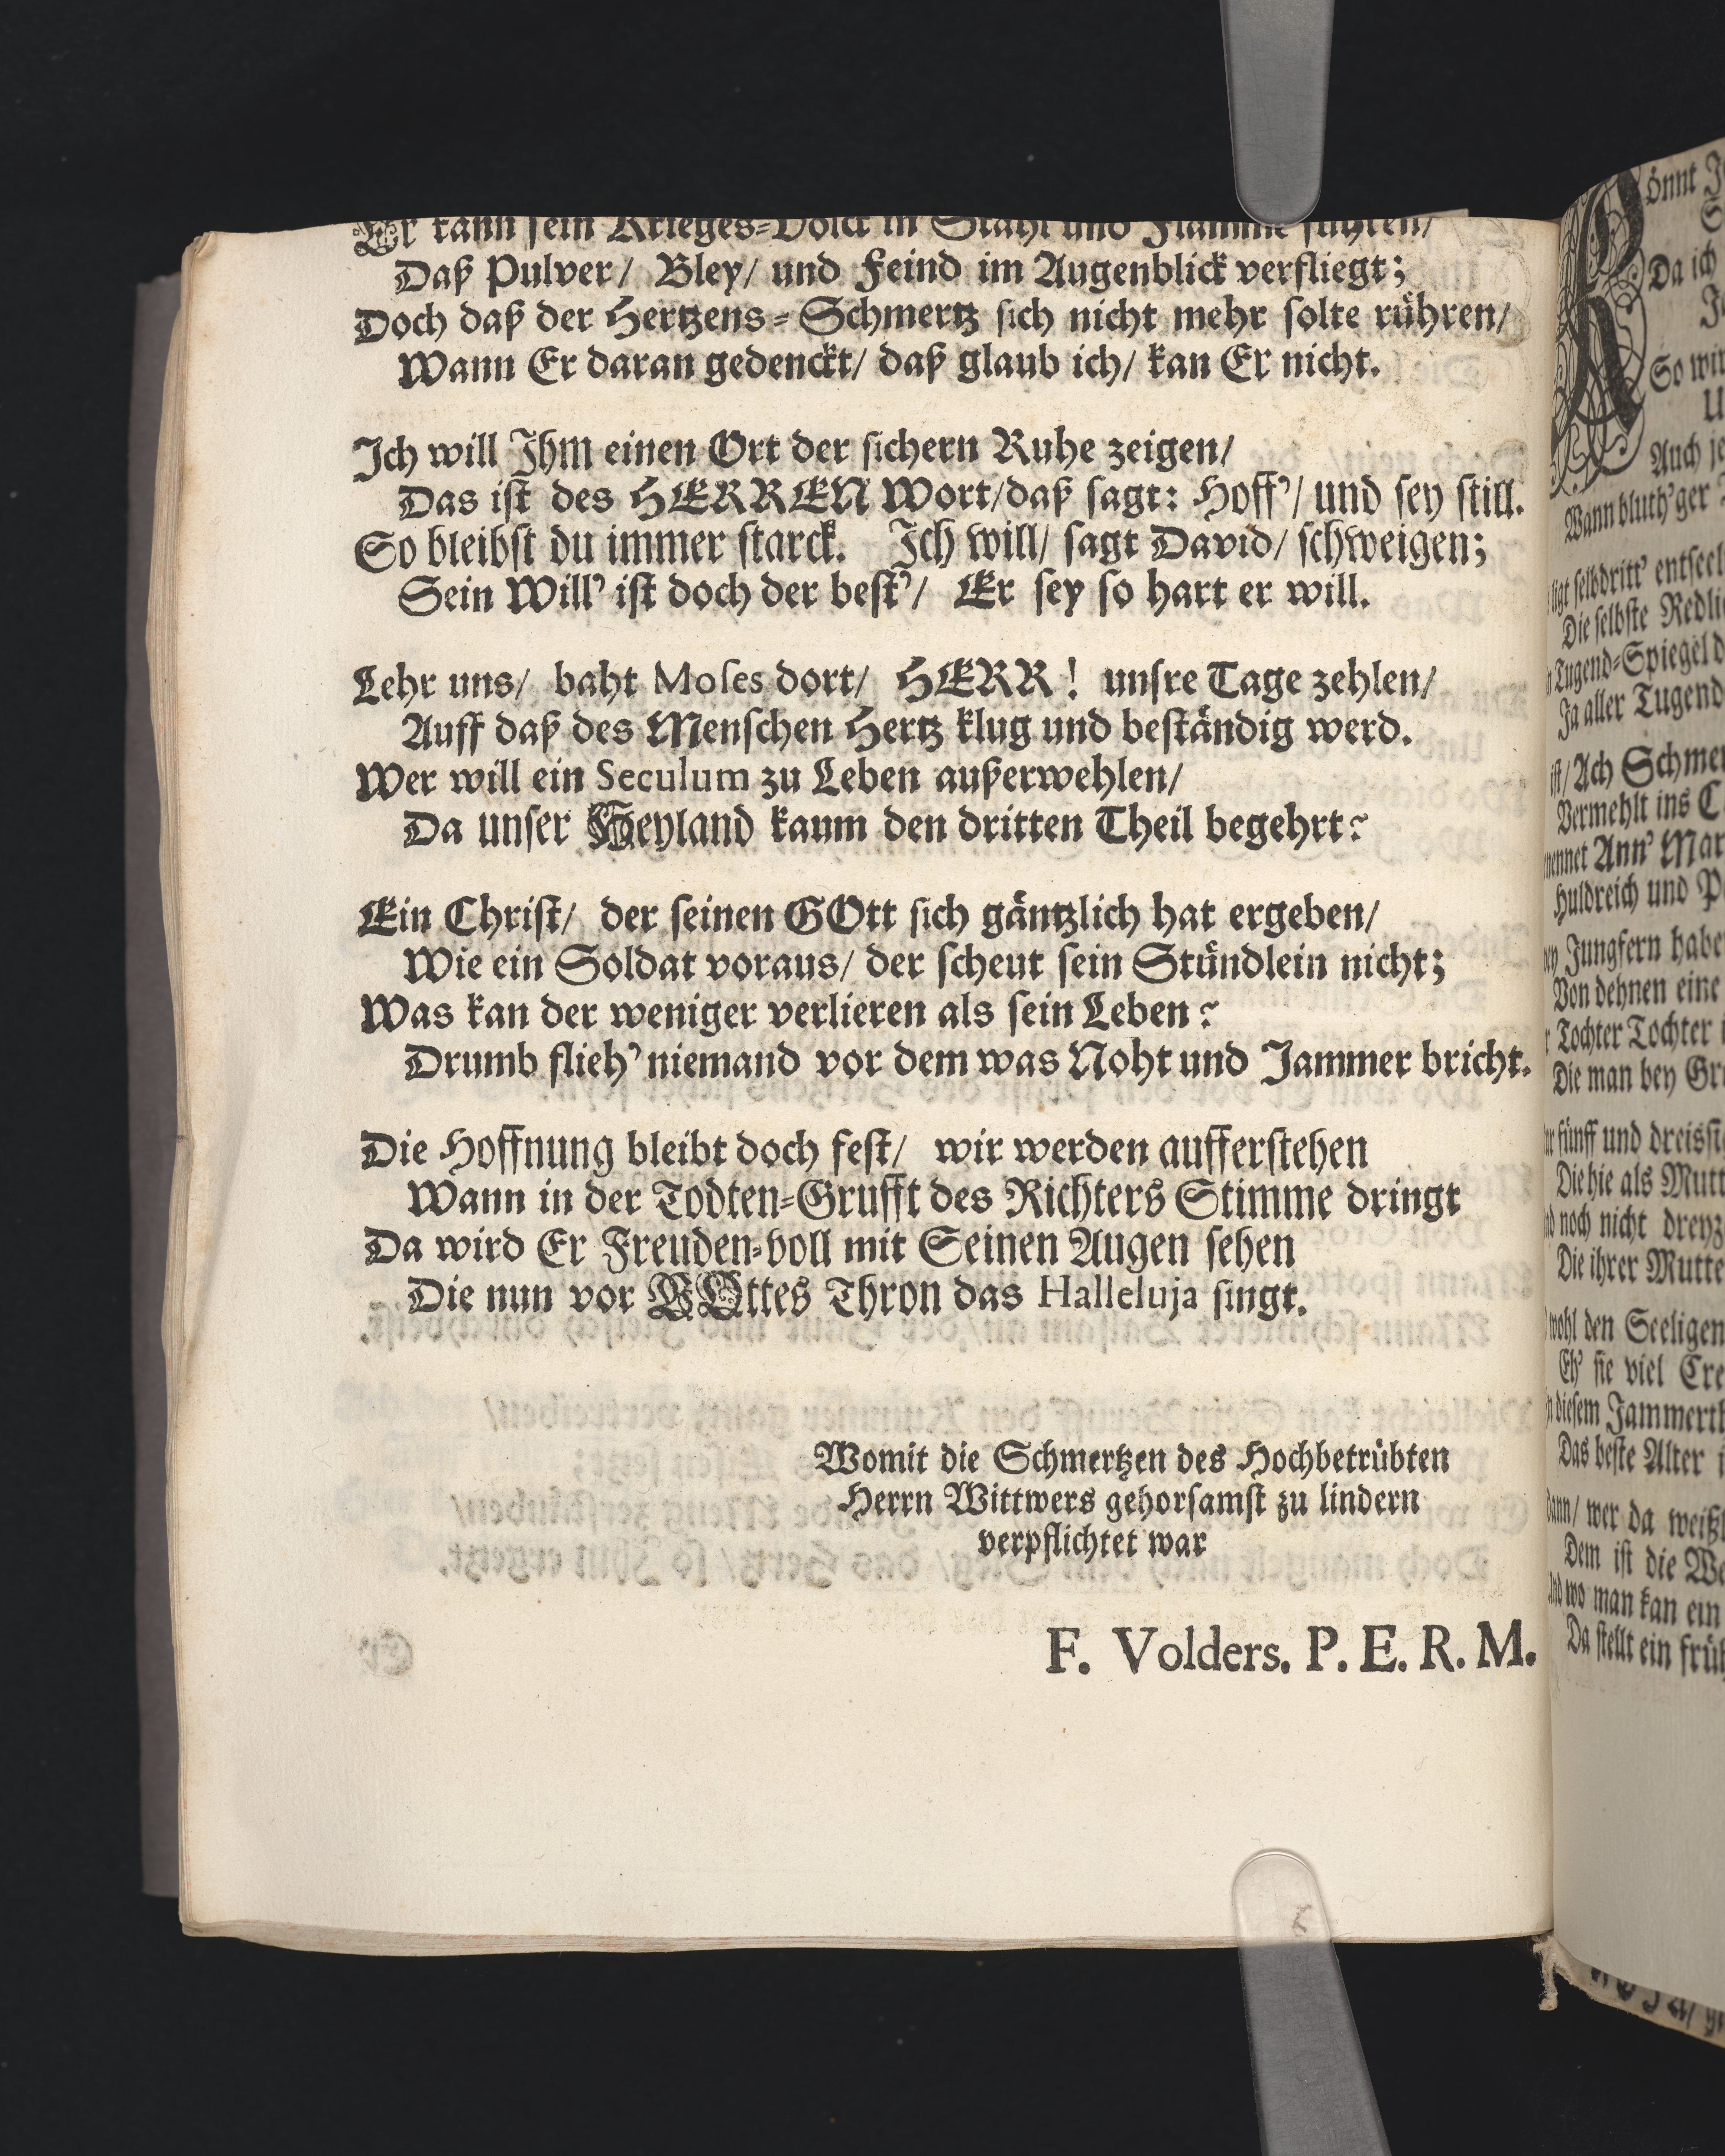 Er kann sein Krieges-Volck in Stahl und Flamme führen/
Daß Pulver/ Bley/ und Feind im Augenblick verfliegt;
Doch daß der Hertzens-Schmertz sich nicht mehr solte rühren/
Wann Er daran gedenckt/ daß glaub ich/ kan Er nicht.
Ich will Ihm einen Ort der sichern Ruhe zeigen/
Das ist des HERREN Wort/daß sagt: Hoff'/ und sey still.
So bleibst du immer starck. Ich will/ sagt David/ schweigen;
Sein Will' ist doch der best'/ Er sey so hart er will.
Lehr uns/ baht Moses dort/ HERR! unsre Tage zehlen/
Auff daß des Menschen Hertz klug und beständig werd.
Wer will ein Seculum zu Leben außerwehlen/
Da unser Heyland kaum den dritten Theil begehrt?
Ein Christ/ der seinen GOtt sich gäntzlich hat ergeben/
Wie ein Soldat voraus/ der scheut sein Stündlein nicht;
Was kan der weniger verlieren als sein Leben?
Drumb flieh' niemand vor dem was Noht und Jammer bricht.
Die Hoffnung bleibt doch fest/ wir werden aufferstehen
Wann in der Todten-Grufft des Richters Stimme dringt
Da wird Er Freuden-voll mit Seinen Augen sehen
Die nun vor GOttes Thron das Halleluja singt.
Womit die Schmertzen des Hochbetrübten
Herrn Wittwers gehorsamst zu lindern
verpflichtet war
F. Volders. P. E. R. M.
önnt
Da ich
So wir
Auch
Wann bluth'ger
selbdritt' entseel
Die selbste Redli
Tugend-Spiegel d
Ja aller Tugend
ist/ Ach Schmer
Vermehlt ins C
nennet Ann' Mar
Huldreich und P
Jungfern habe
Von dehnen eine
Tochter Tochter
Die man bey Gr
fünff und dreissi
Die hie als Mutt
noch nicht dreyz
Die ihrer Mutte
wohl den Seeligen
Eh' sie viel Cre
diesem Jammerth
Das beste Alter
dann/ wer da weiß
Dem ist die We
wo man kan ein
Da stellt ein früh